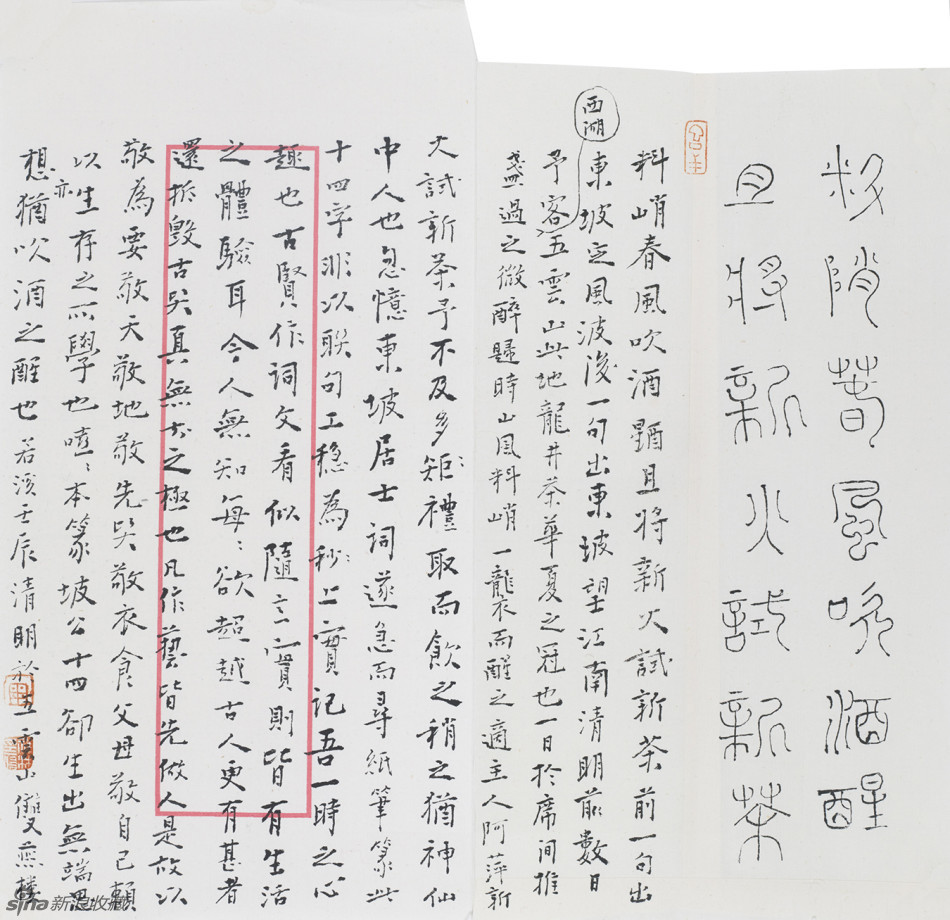 料峭春風吹酒醒
且將新火試新茶
料峭春風吹酒醒且將新火試新茶前一句出
東坡定風波後一句出東坡望江南清明前數日
西湖
予客五雲山此地龍井茶華夏之冠也一日於席間推
盞過之微醉歸時山風料峭一襲衣而醒之適主人阿萍新
火試新茶予不及多矩禮取而飲之稍之猶神仙
中人也忽憶東坡居士詞遂急而尋紙筆篆此
十四字非以聯句工穩為秒秒上實記吾一時之心
趣也古賢作詞文看似隨意實則皆有生活
之體驗耳今人無知每每欲超越古人更有甚者
還拆毀古吳真無知之極也凡作藝皆先做人是故以
敬為要敬天敬地敬先吳敬衣食父母敬自己賴
以生存之所學也嘻嘻本篆坡公十四卻生出無端思
亦
想猶吹酒之醒也若溪壬辰清明於五雲山雙燕樓
sina新浪收藏